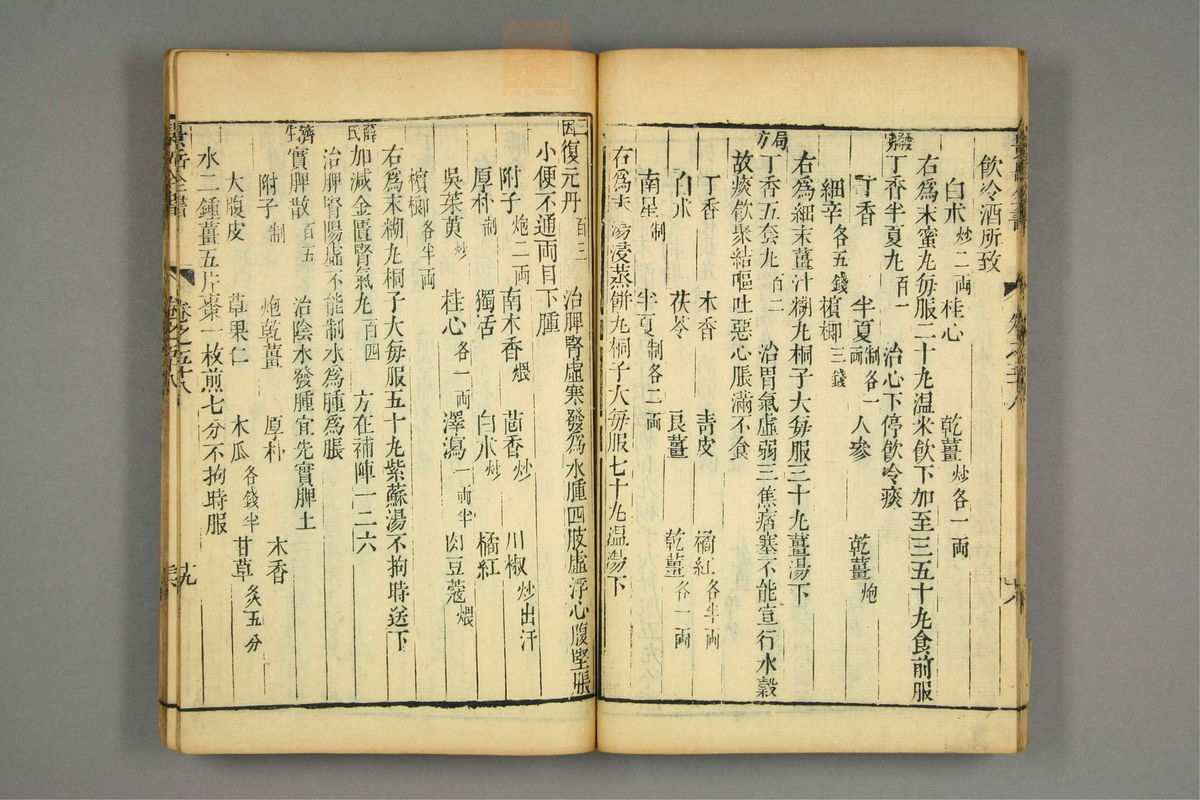 飲冷酒所致
白朮炒二兩 桂心 乾薑炒各一兩
右爲末蜜丸每服二十丸温米飲下加至三五十丸食前服
丁香半夏丸百一 治心下停飲冷痰
丁香 半夏制各一兩 人參 乾薑炮
細辛各五錢 檳榔三錢
右爲細末薑汁糊丸桐子大每服三十丸薑湯下
局方丁香五套丸百二 治胃氣虛弱三焦痞塞不能宣行水穀
故痰飲聚結嘔吐惡心脹滿不食
丁香 木香 青皮 橘紅各半兩
白朮 茯苓 良薑 乾薑各一兩
南星制 半夏制各二兩
右爲末湯浸蒸餅丸桐子大每服七十丸温湯下
三因復元丹百三 治脾腎虛寒發爲水腫四肢虛浮心腹堅脹
小便不通両目下腫
附子炮二兩 南木香煨 茴香炒 川椒炒出汗
厚朴制 獨活 白朮炒 橘紅
吳茱萸炒 桂心各一兩 澤瀉一兩半 肉豆蔻煨
檳榔各半兩
右爲末糊丸桐子大每服五十丸紫蘇湯不拘時送下
薛氏加減金匱腎氣丸百四 方在補陣一二六
治脾腎陽虛不能制水爲腫爲脹
濟生實脾散百五 治陰水發腫宜先實脾土
附子制 炮乾薑 厚朴 木香
大腹皮 草果仁 木瓜各錢半 甘草炙五分
水二鍾薑五片棗一枚煎七分不拘時服